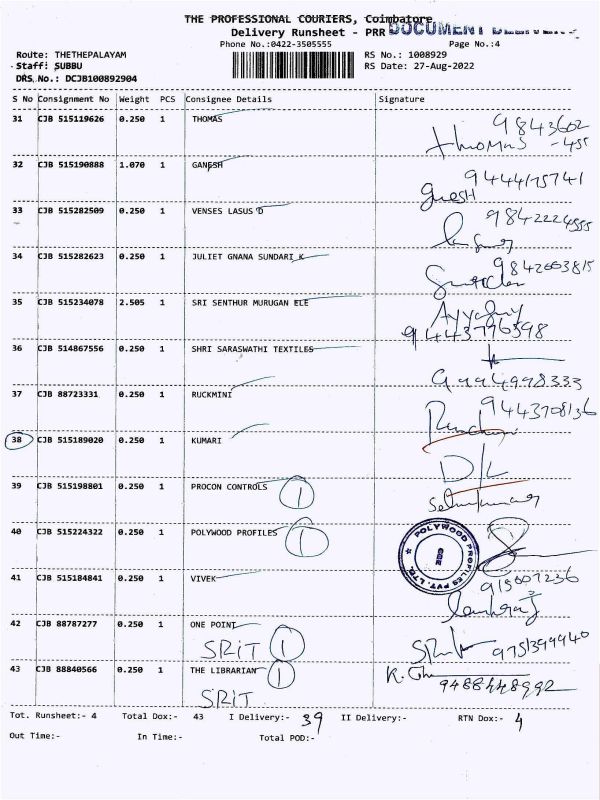 THE PROFESSIONAL COURIERS, Coimbatore
Delivery Runsheet - PRR
Phone No.:0422-3505555 Page No.:4
Route: THETHEPALAYAM RS No.: 1008929
Staff: SUBBU RS Date: 27-Aug-2022
DRS No.: DCJB100892904
S No Consignment No Weight PCS Consignee Details Signature
31 CJB 515119626 0.250 1 THOMAS 9843602
Thomas -455
32 CJB 515190888 1.070 1 GANESH 9444175741
33 CJB 515282509 0.250 1 VENSES LASUS D 9842224555
34 CJB 515282623 0.250 1 JULIET GNANA SUNDARI K 9842003815
35 CJB 515234078 2.505 1 SRI SENTHUR MURUGAN ELE
9443796598
36 CJB 514867556 0.250 1 SHRI SARASWATHI TEXTILES
9994998333
37 CJB 88723331 0.250 1 RUCKMINI 9443708136
38 CJB 515189020 0.250 1 KUMARI
D/L
39 CJB 515198801 0.250 1 PROCON CONTROLS 1
40 CJB 515224322 0.250 1 POLYWOOD PROFILES 1
POLYWOOD PROFILES PVT. LTD.
CBE
41 CJB 515184841 0.250 1 VIVEK 915007236
42 CJB 88787277 0.250 1 ONE POINT
SRIT 1 9751399940
43 CJB 88840566 0.250 1 THE LIBRARIAN 1
SRIT 9488448992
Tot. Runsheet:- 4 Total Dox:- 43 I Delivery:- 39 II Delivery:- RTN Dox:- 4
Out Time:- In Time:- Total POD:-